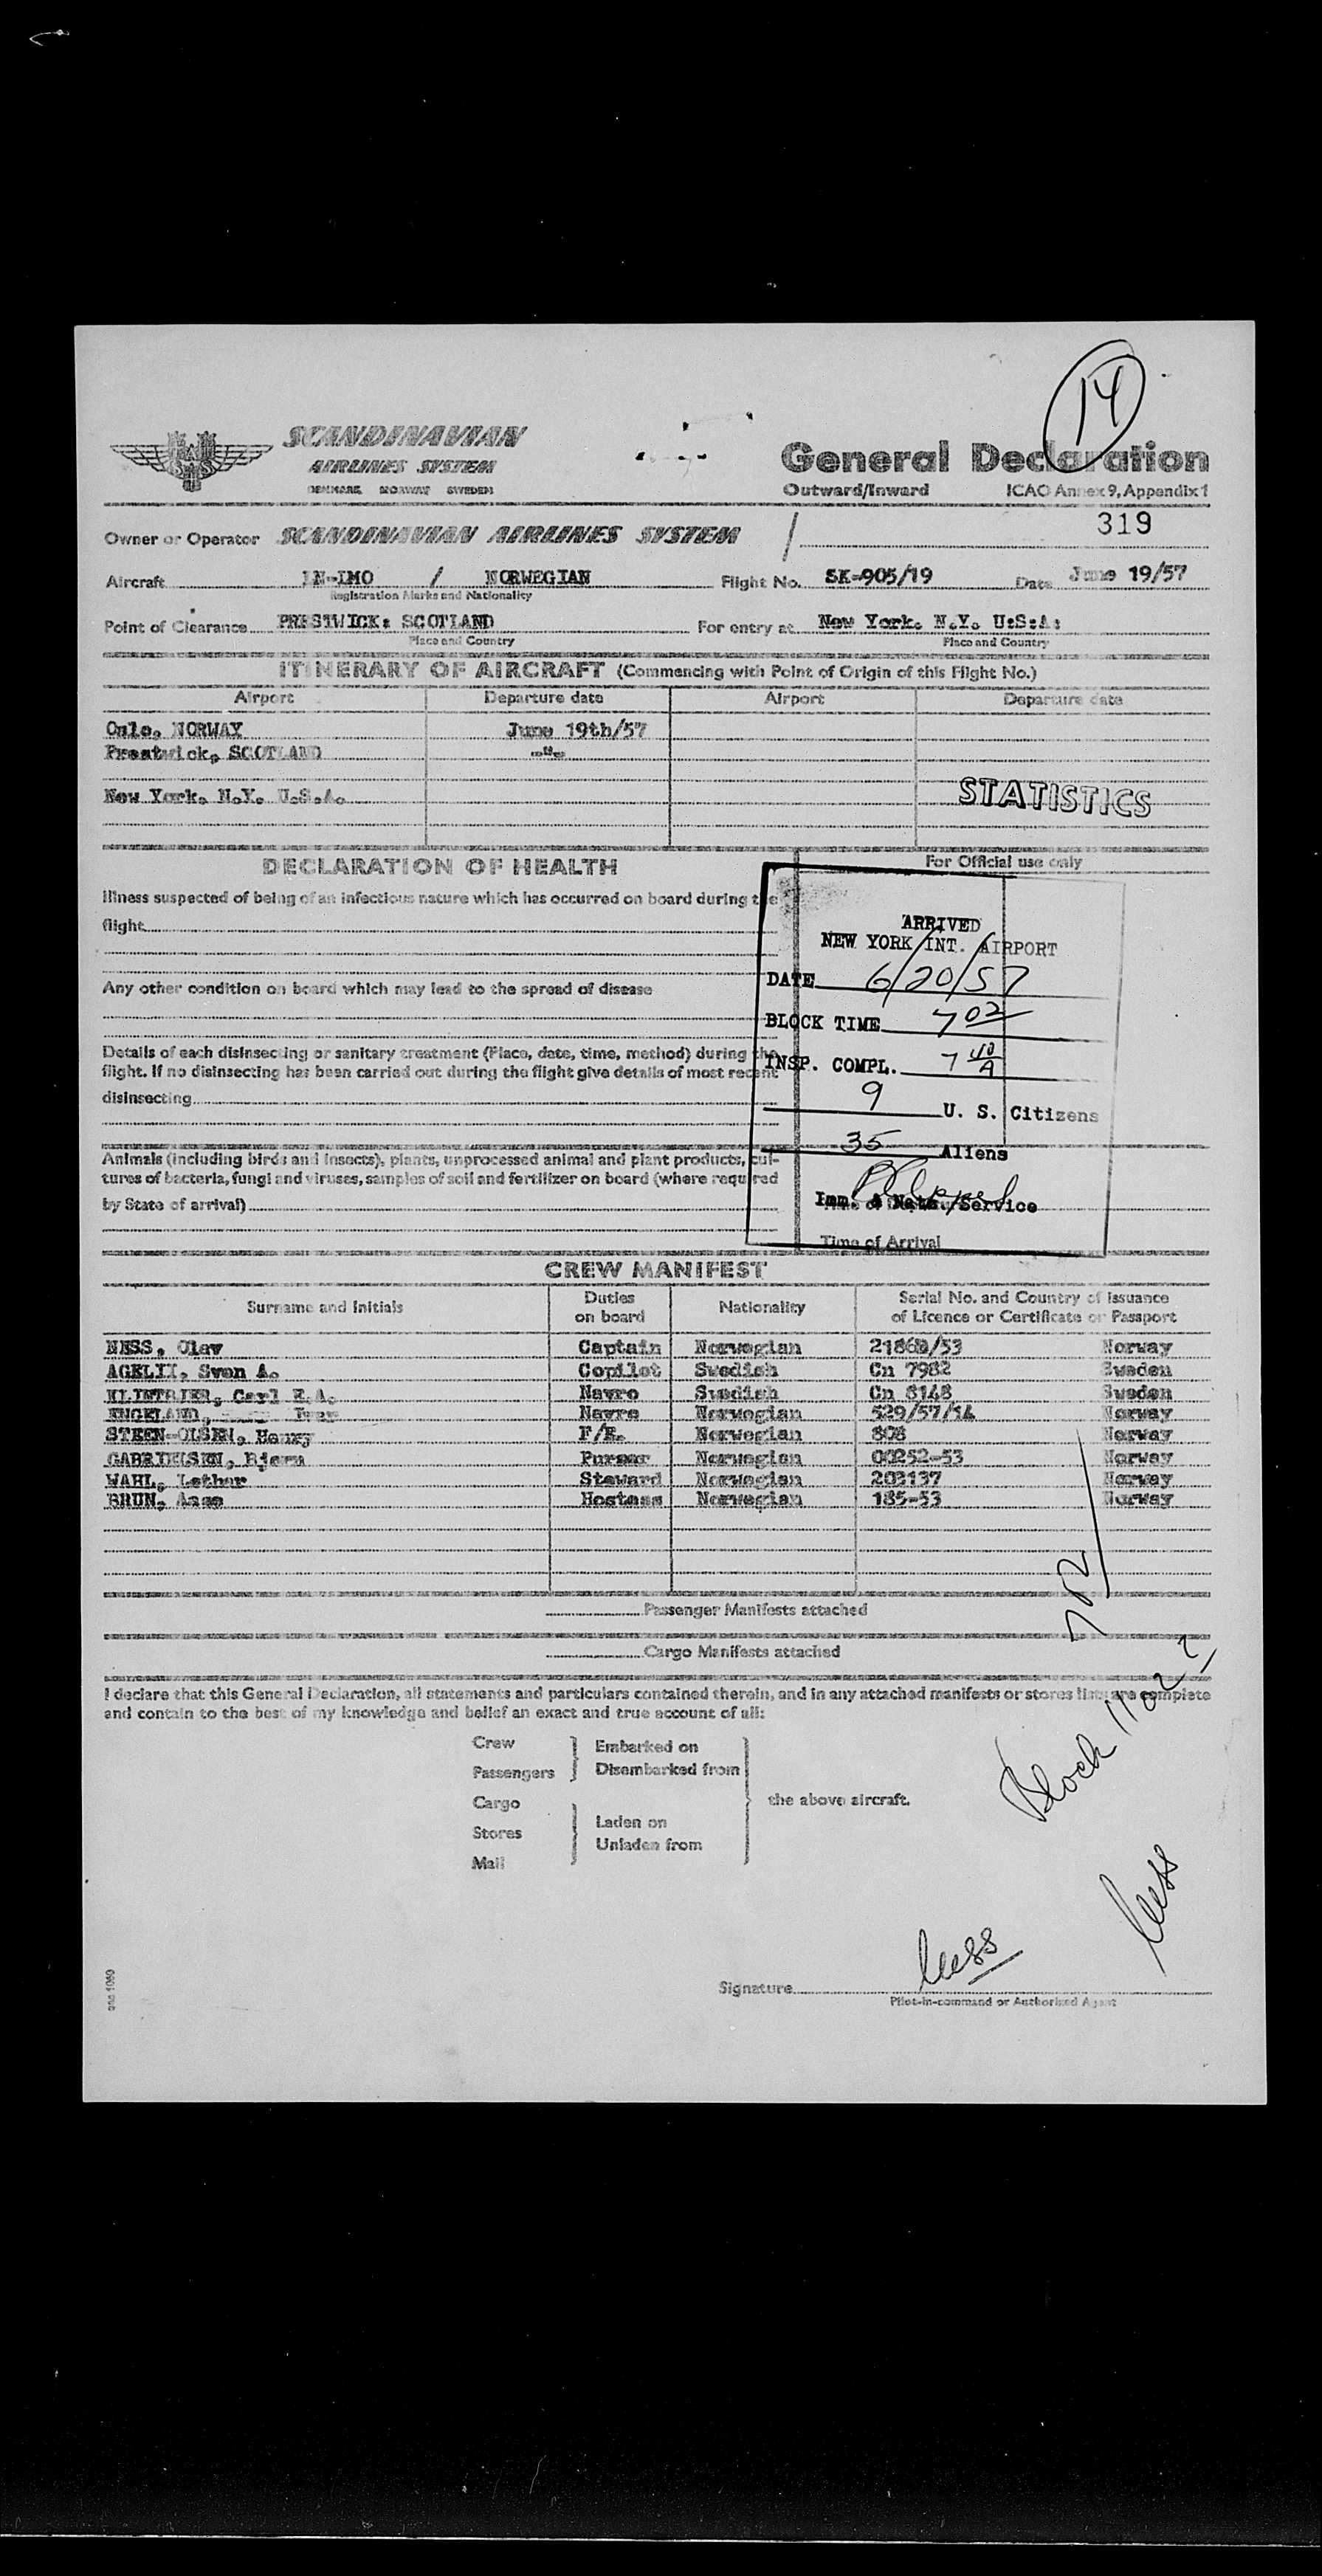 14
SCANDINAVIAN
AIRLINES SYSTEM
DENMARK NORWAY SWEDEN
General Declaration
Outward/Inward ICAO Annex 9, Appendix 1
319
Owner or Operator SCANDINAVIAN AIRLINES SYSTEM
Aircraft LN-LMO / NORWEGIAN Flight No. SK-905/19 Date June 19/57
Registration Marks and Nationality
Point of Clearance PRESTWICK: SCOTLAND For entry at New York. N.Y. U:S:A:
Place and Country Place and Country
ITINERARY OF AIRCRAFT (Commencing with Point of Origin of this Flight No.)
Airport Departure date Airport Departure date
Oslo, NORWAY June 19th/57
Prestwick, SCOTLAND -"-
New York. N.Y. U.S.A.
STATISTICS
DECLARATION OF HEALTH
For Official use only
Illness suspected of being of an infectious nature which has occurred on board during the
flight
Any other condition on board which may lead to the spread of disease
Details of each disinsecting or sanitary treatment (Place, date, time, method) during the
flight. If no disinsecting has been carried out during the flight give details of most recent
disinsecting
Animals (including birds and insects), plants, unprocessed animal and plant products, cul-
tures of bacteria, fungi and viruses, samples of soil and fertilizer on board (where required
by State of arrival)
ARRIVED
NEW YORK INT. AIRPORT
DATE 6/20/57
BLOCK TIME 7 02
INSP. COMPL. 7 40 A
9 U. S. Citizens
35 Aliens
Imm. & Natz. Service
Time of Arrival
CREW MANIFEST
Surname and Initials Duties on board Nationality Serial No. and Country of issuance of Licence or Certificate or Passport
NESS, Olav Captain Norwegian /53 Norway
AGELII, Sven A. Copilot Swedish Cn 7982 Sweden
Carl E.A. Navro Swedish Cn 8148 Sweden
ENGELAND, Navro Norwegian 529/57/14 Norway
STEEN-OLSEN, Henry F/E. Norwegian 808 Norway
GABRIELSEN, Bjorn Purser Norwegian 00252-53 Norway
WAHL, Lothar Steward Norwegian 203137 Norway
BRUN, Aase Hostess Norwegian 185-53 Norway
Passenger Manifests attached
Cargo Manifests attached
I declare that this General Declaration, all statements and particulars contained therein, and in any attached manifests or stores lists are complete
and contain to the best of my knowledge and belief an exact and true account of all:
Crew
Passengers
Embarked on
Disembarked from
Cargo
Stores
Mail
Laden on
Unladen from
the above aircraft.
702
Block 1102
Ness
Signature Ness
Pilot-in-command or Authorized Agent